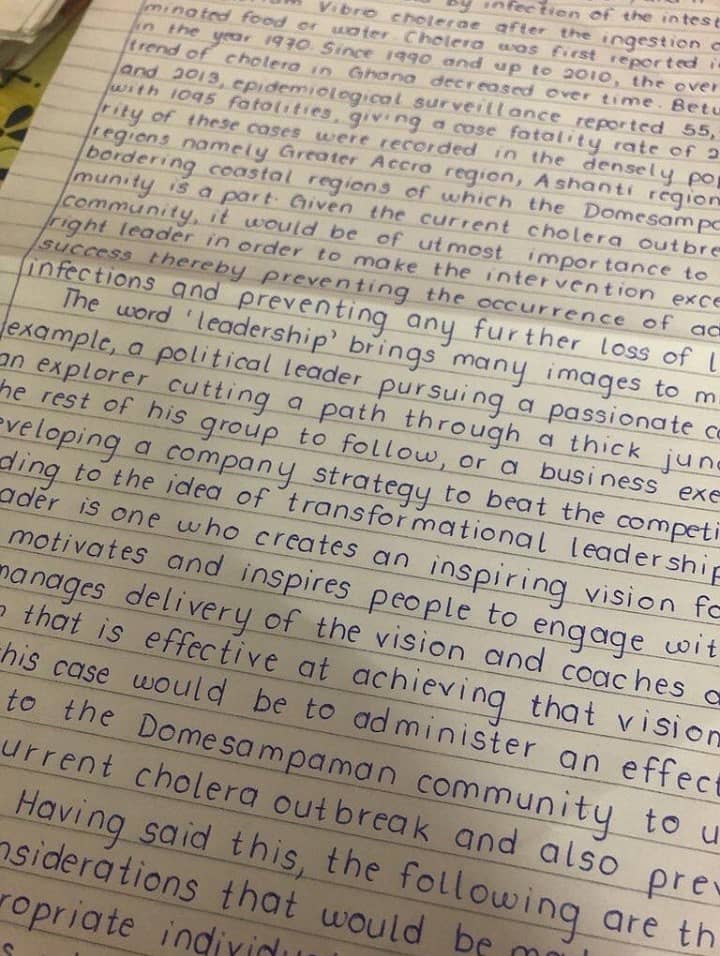 Vibrio cholerae after the ingestion
by infection of the intest
minated food or water. Cholera was first reported i
in the year 1970. Since 1990 and up to 2010, the over
trend of cholera in Ghana decreased over time. Betw
and 2013, epidemiological surveillance reported 55,
with 1095 fatalities, giving a case fatality rate of 2
rity of these cases were recorded in the densely pop
regions namely Greater Accra region, Ashanti region
bordering coastal regions of which the Domesampa
munity is a part. Given the current cholera outbre
community, it would be of utmost importance to
right leader in order to make the intervention exce
success thereby preventing the occurrence of ad
infections and preventing any further loss of l
The word 'leadership' brings many images to mi
example, a political leader pursuing a passionate ca
an explorer cutting a path through a thick jung
he rest of his group to follow, or a business exe
eveloping a company strategy to beat the competi
ding to the idea of transformational leadership
ader is one who creates an inspiring vision fo
motivates and inspires people to engage wit
manages delivery of the vision and coaches a
that is effective at achieving that vision
his case would be to administer an effect
to the Domesampaman community to u
urrent cholera outbreak and also prev
Having said this, the following are th
nsiderations that would be
ropriate individu